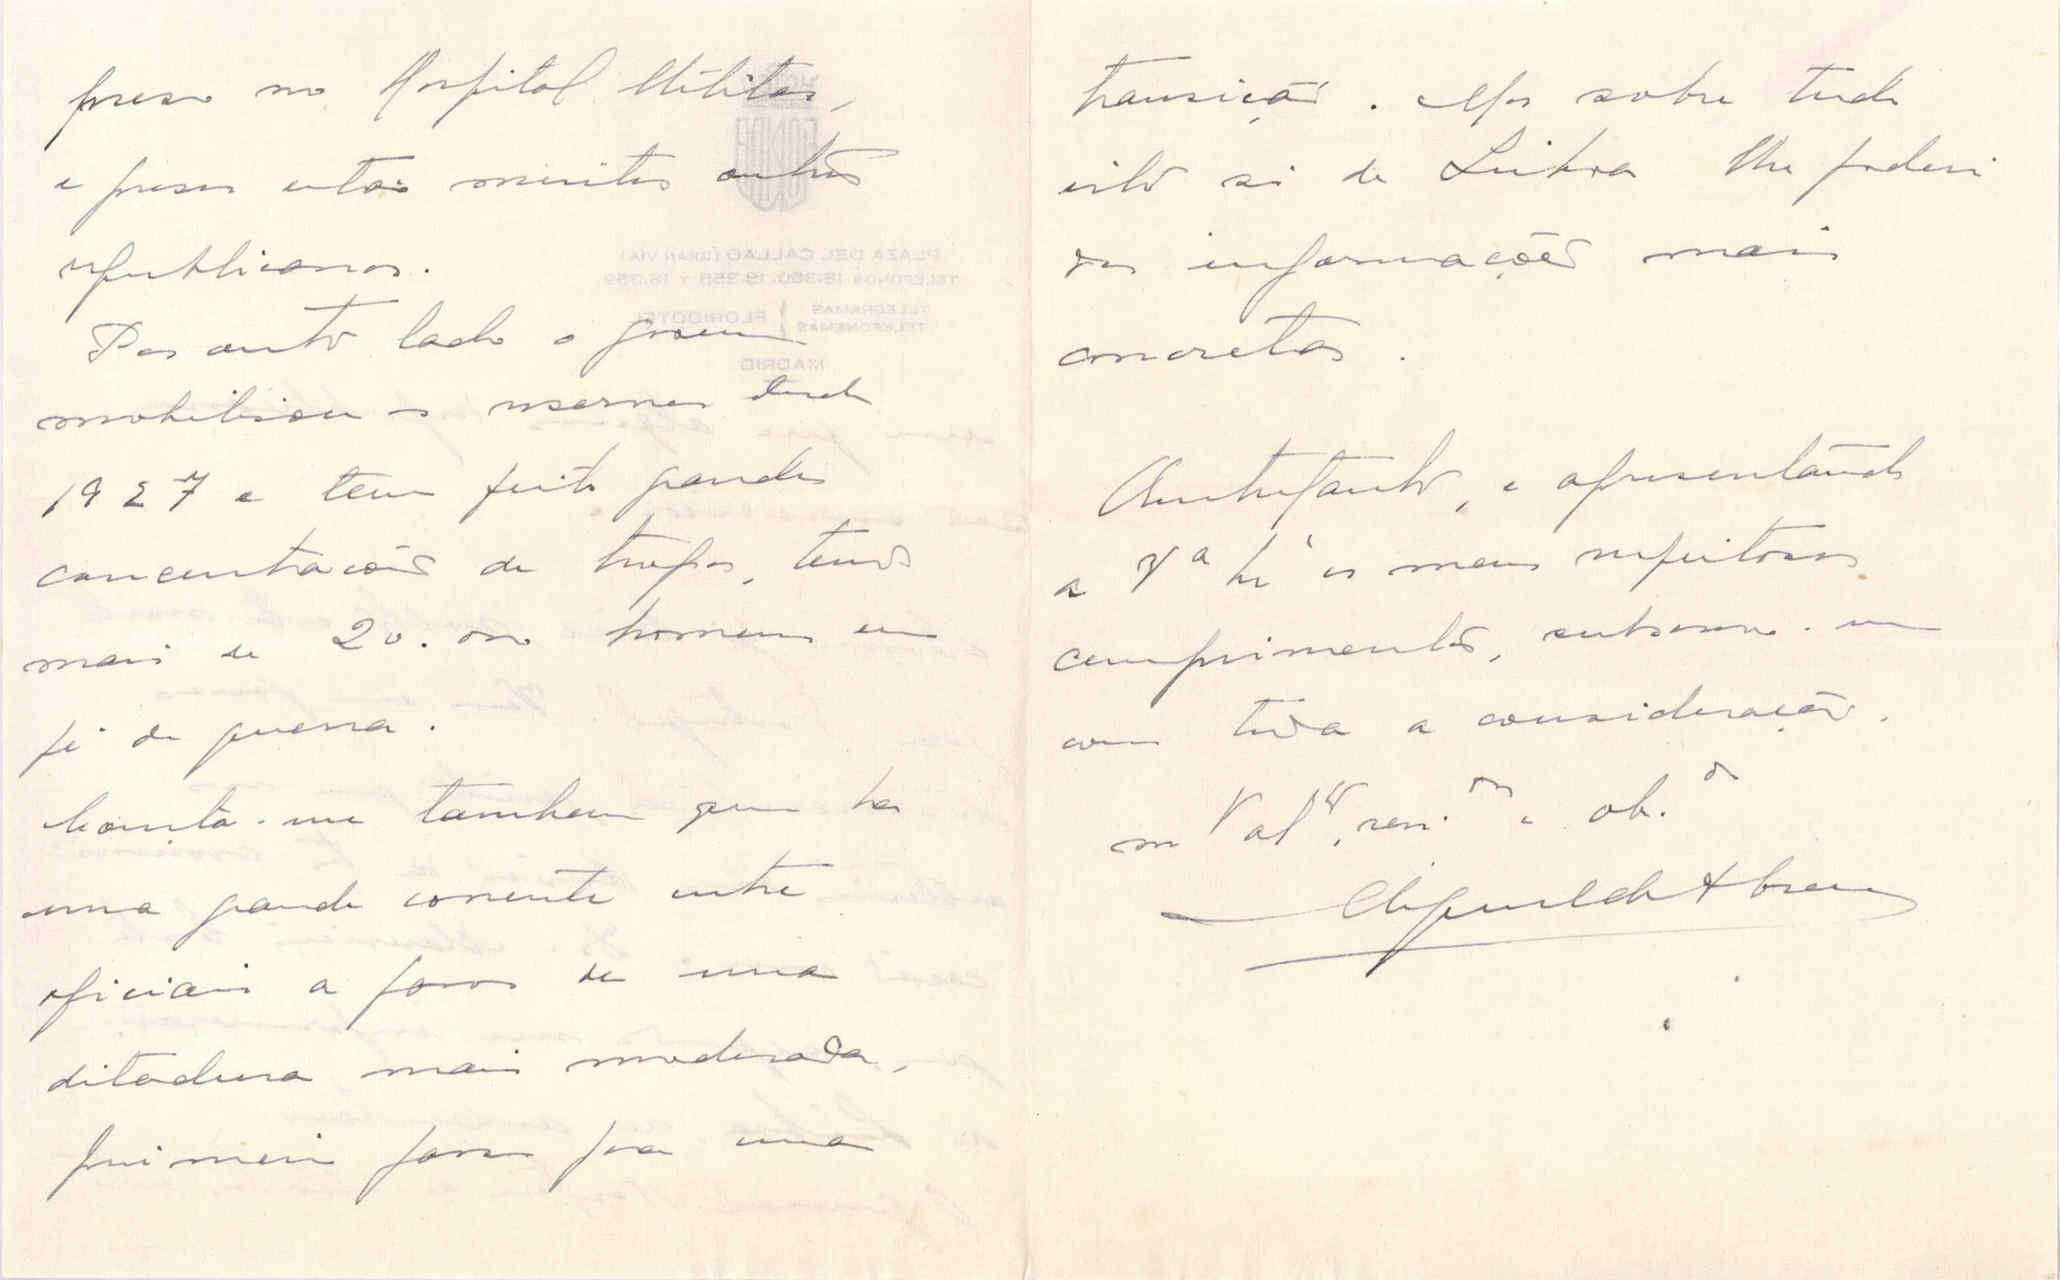 preso no Hospital Militar,
e presos estão muitos outros
republicanos.
Por outro lado o governo
mobilisou as reservas desde
1927 e tem feito grandes
concentrações de tropas, tendo
mais de 20.000 homens em
pé de guerra.
Consta-me tambem que ha
uma grande corrente entre
oficiais a favor de uma
ditadura mais moderada,
primeiro passo pra uma
transição. Mas sobre tudo
isto só de Lisboa lhe poderei
dar informações mais
concretas.
Entretanto, e apresentando
a V.ª Ex.ª os meus respeitosos
cumprimentos, subscrevo-me
com toda a consideração.
PLAZA DEL CALLAO (GRAN VÍA)
TELEFONOS 18.360, 18.358 Y 18.359
TELEGRAMAS
TELEFONEMAS
FLORIDOTEL
MADRID